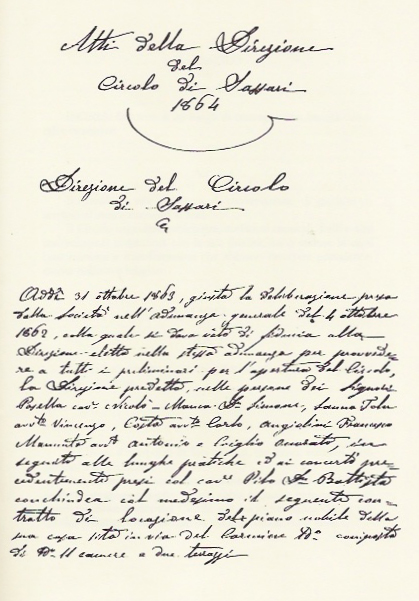 Atti della Direzione
del
Circolo di Sassari
1864
Direzione del Circolo
di Sassari
Addì 31 ottobre 1863, giusta la deliberazione presa
dalla Società nell'adunanza generale del 4 ottobre
1862, colla quale si dava voto di fiducia alla
Direzione eletta nella stessa adunanza per provvede-
re a tutti i preliminari per l'apertura del Circolo,
la Direzione predetta, nelle persone dei Signori
cavr Nicolò Manca Dn Simone, Sanna Tolu
avvto Vincenzo, Costa avvto Carlo, Angiolini Francesco
avvto Antonio e Amerato, in
seguito alle lunghe pratiche ed ai concerti pre-
cedentemente presi col cavr Pilo Dn Battista
conchiudea col medesimo il seguente con-
tratto di locazione del piano nobile della
sua casa sita in via del Carmine No composta
di No 11 camere e due terrazzi